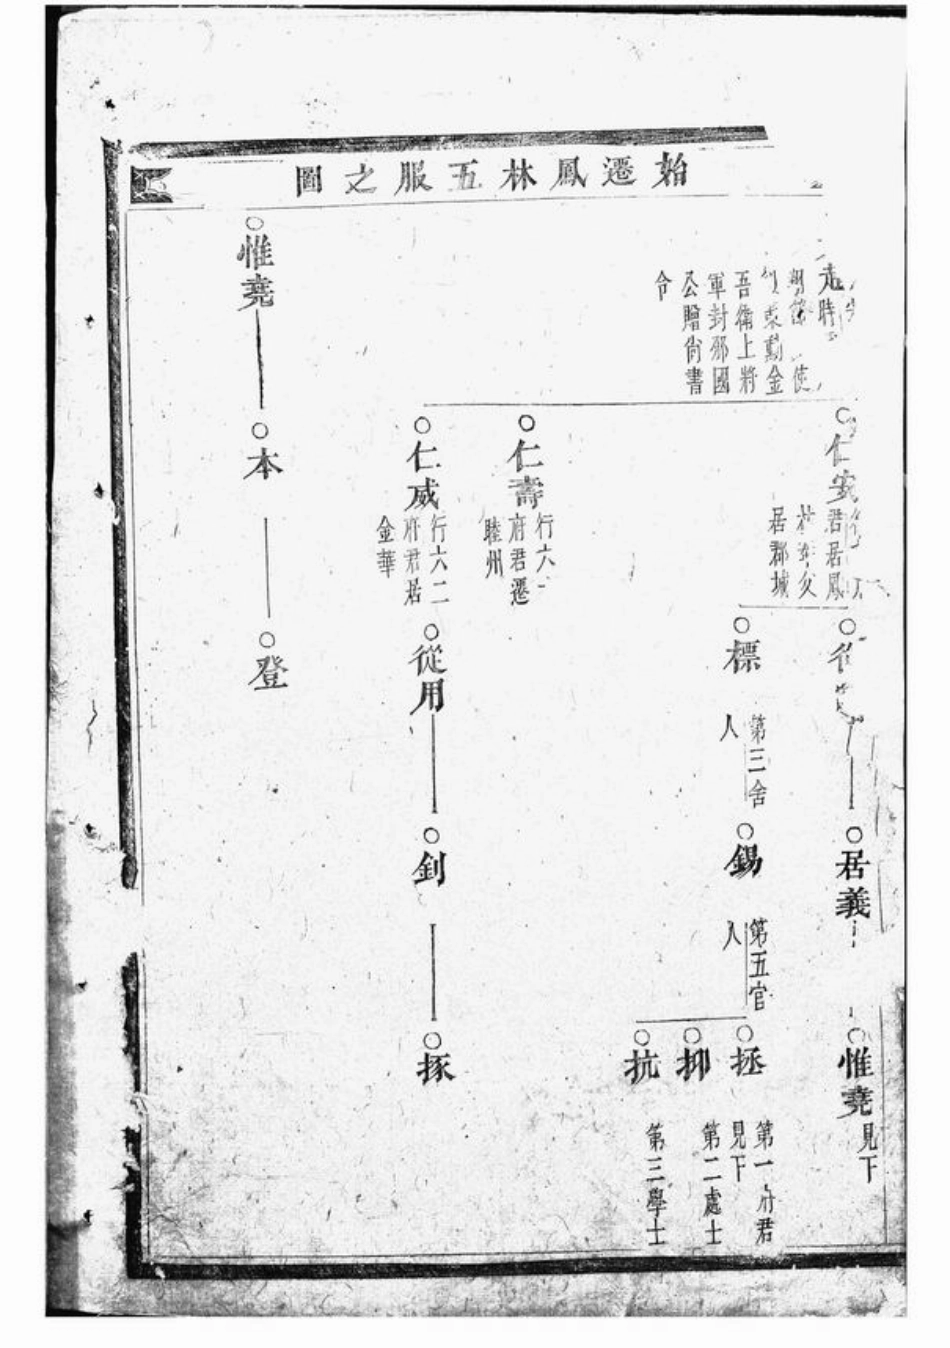 始遷鳳林五服之圖
走時
使
勳金
吾衛上將
軍封邠國
公贈尚書
令
仁安
君居鳳
居郡城
仁壽
行六一
府君遷
睦州
仁威
行六二
府君居
金華
標
第三舍
人
從用
居義
錫
第五官
人
釗
惟堯
見下
拯
第一府君
見下
抑
第二處士
抗
第三學士
㧻
惟堯
本
登